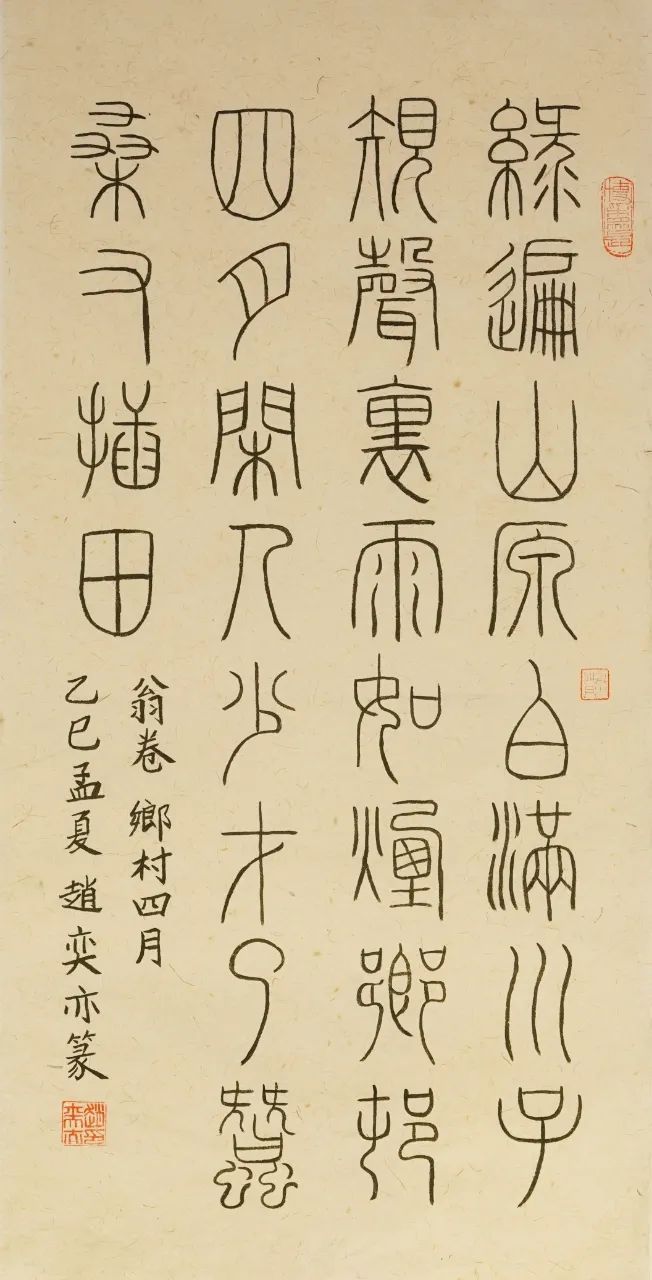 綠遍山原白滿川子
規聲裏雨如煙鄉邨
四月閑人少才了蠶
桑又插田
翁卷 鄉村四月
乙巳孟夏 趙奕亦篆